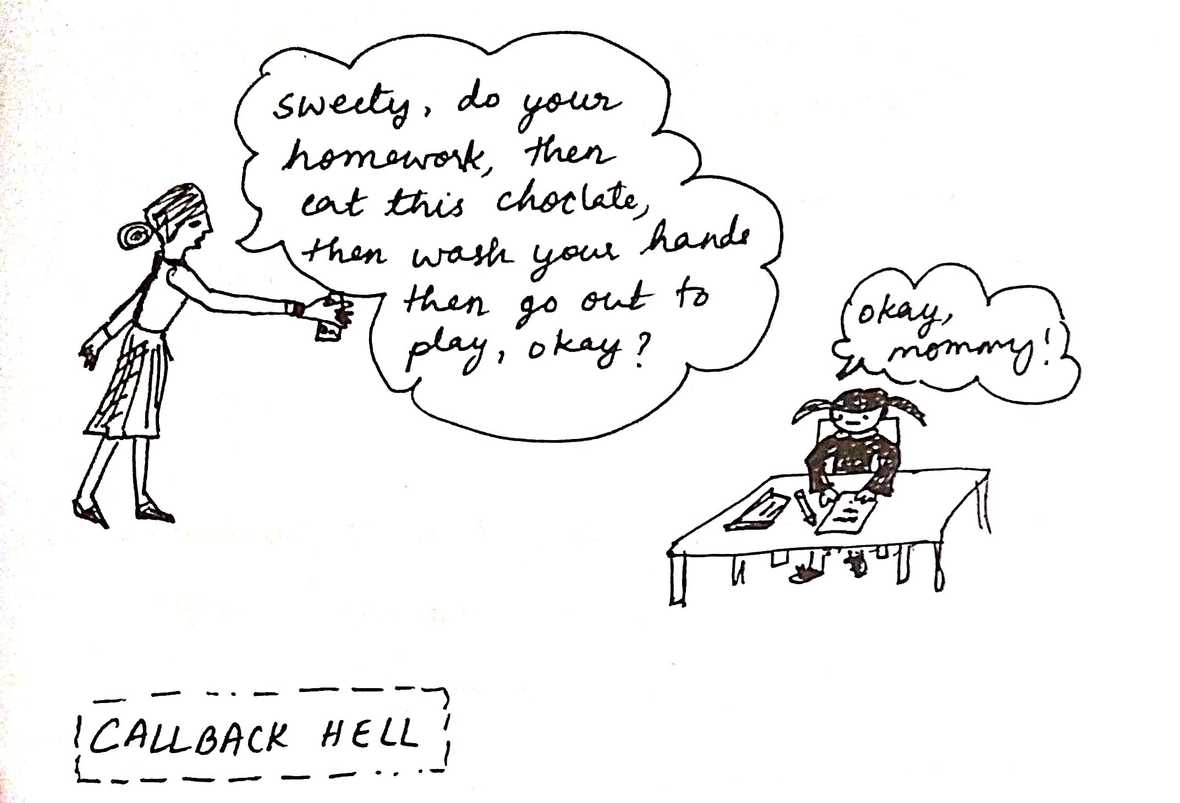 sweety, do your
homework, then
eat this choclate,
then wash your hands
then go out to
play, okay?
okay,
mommy!
CALLBACK HELL